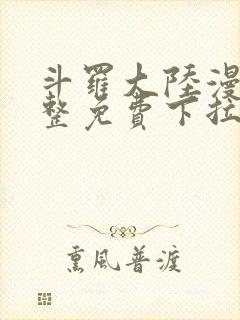 斗羅大陸漫
整免費下拉
熏風普渡